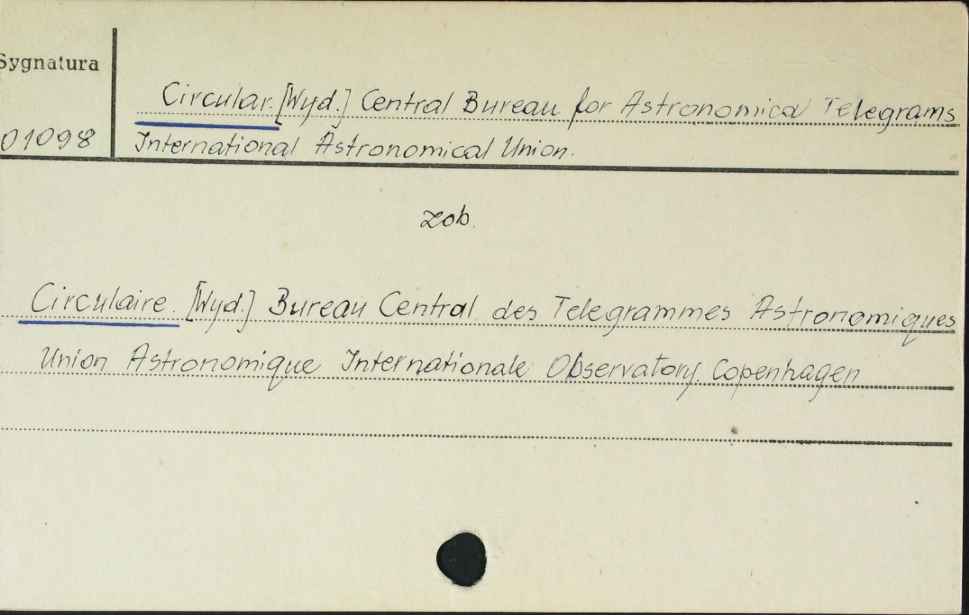 Sygnatura
Circular. [Wyd.] Central Bureau for Astronomical Telegrams
01098
International Astronomical Union.
zob.
Circulaire. [Wyd.] Bureau Central des Telegrammes Astronomiques
Union Astronomique Internationale Observatory Copenhagen